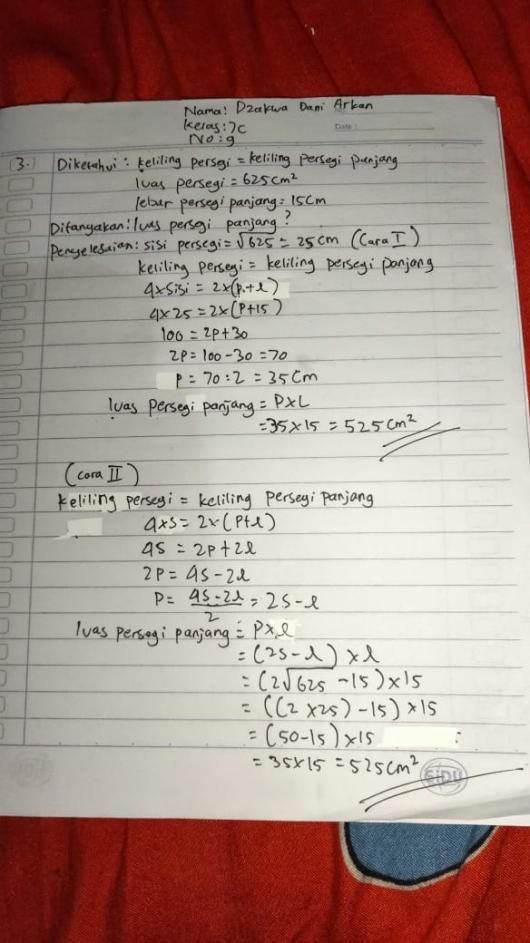 Nama: Dzakwa Dani Arkan
Kelas: 7c
No: 9
Date:
3. Diketahui: keliling persegi = keliling persegi panjang
luas persegi = 625 cm²
lebar persegi panjang = 15 cm
Ditanyakan: luas persegi panjang?
Penyelesaian: sisi persegi = √625 = 25 cm (Cara I)
keliling persegi = keliling persegi panjang
4 x sisi = 2 x (p + l)
4 x 25 = 2 x (p + 15)
100 = 2p + 30
2p = 100 - 30 = 70
p = 70 : 2 = 35 cm
luas persegi panjang = P x L
= 35 x 15 = 525 cm²
(Cara II)
keliling persegi = keliling persegi panjang
4 x s = 2 x (p + l)
4s = 2p + 2l
2p = 4s - 2l
p = (4s - 2l)/2 = 2s - l
luas persegi panjang = p x l
= (2s - l) x l
= (2√625 - 15) x 15
= ((2 x 25) - 15) x 15
= (50 - 15) x 15
= 35 x 15 = 525 cm²
SiDU